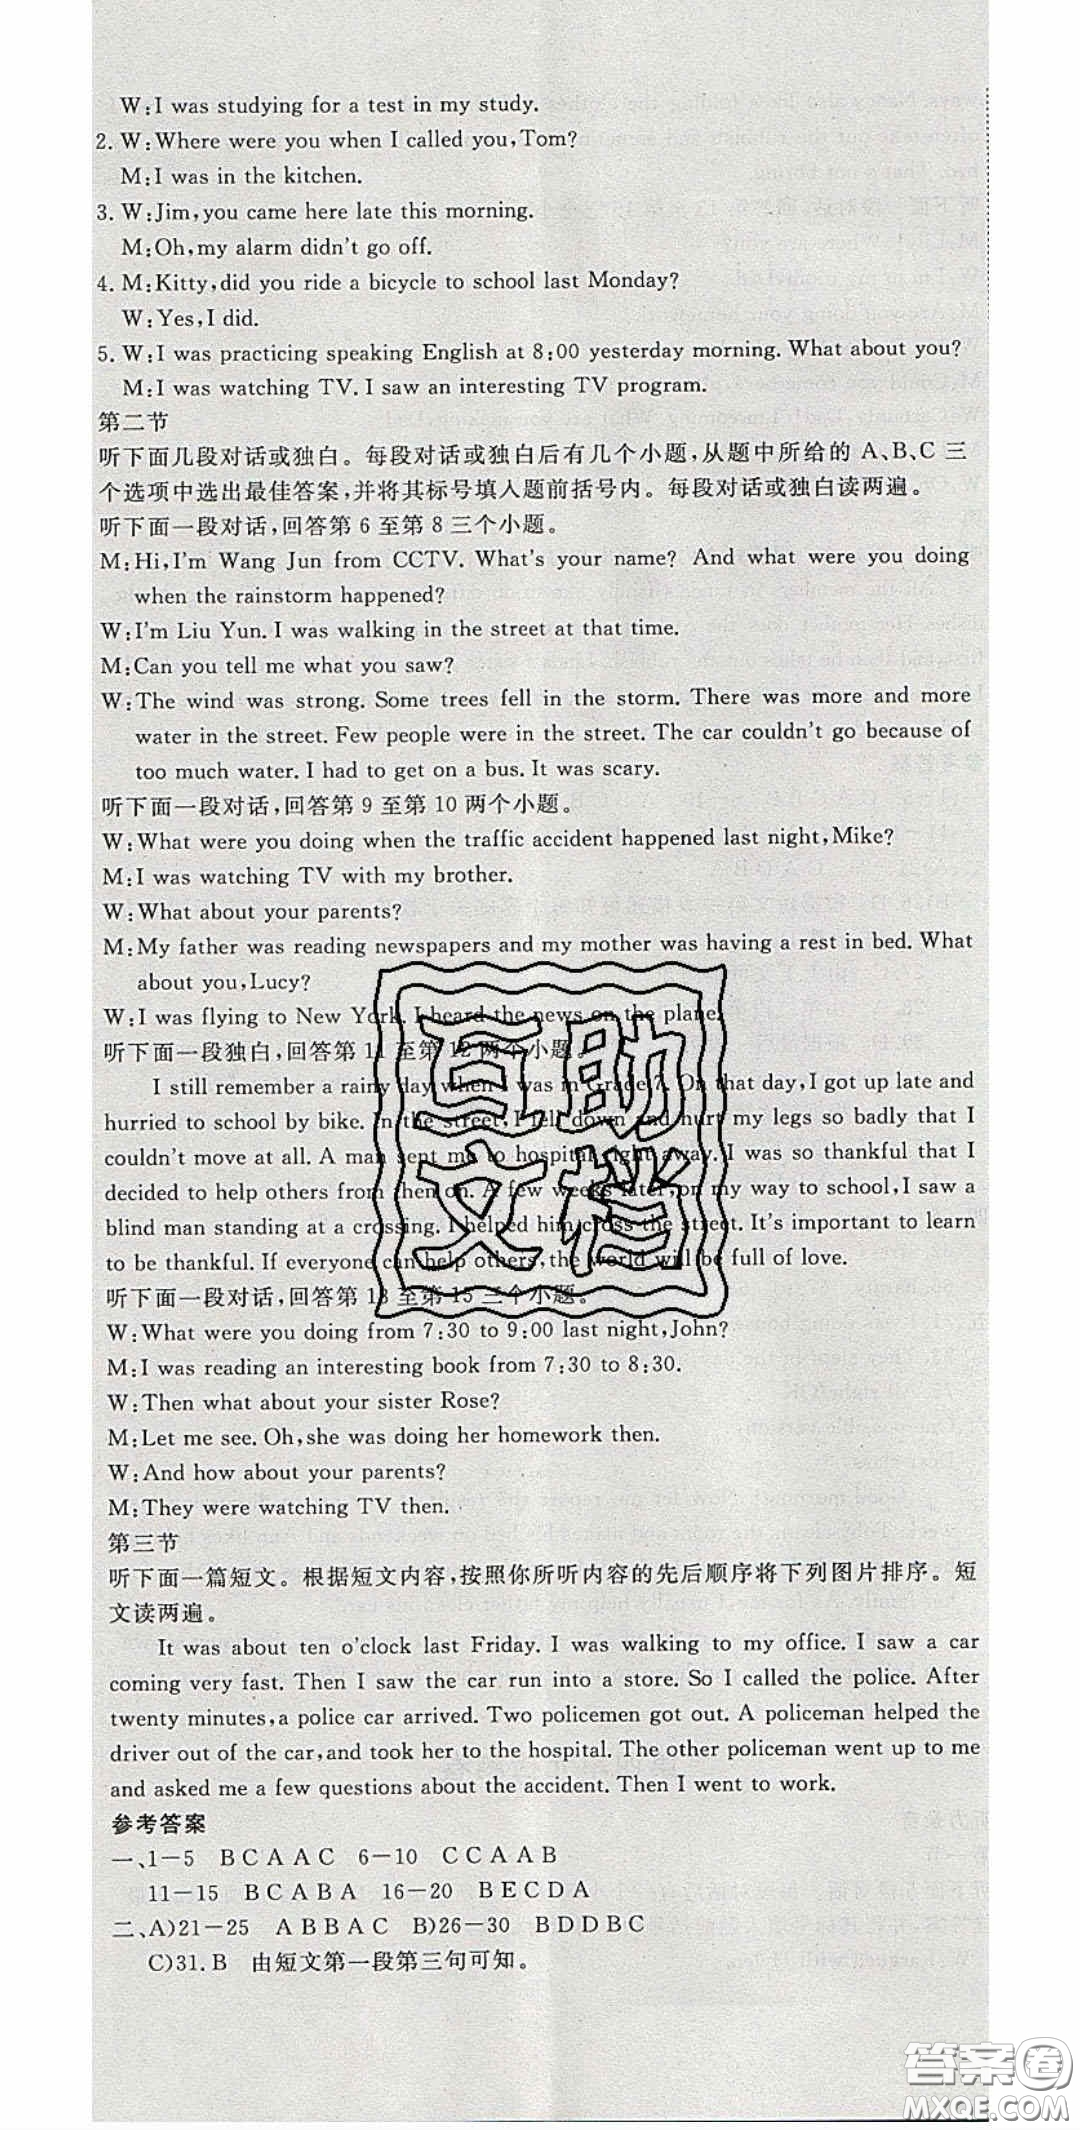 W:I was studying for a test in my study.
2. W:Where were you when I called you,Tom?
M:I was in the kitchen.
3. W:Jim,you came here late this morning.
M:Oh,my alarm didn't go off.
4. M:Kitty,did you ride a bicycle to school last Monday?
W:Yes,I did.
5. W:I was practicing speaking English at 8:00 yesterday morning. What about you?
M:I was watching TV. I saw an interesting TV program.
第二节
听下面几段对话或独白。每段对话或独白后有几个小题,从题中所给的 A、B、C 三
个选项中选出最佳答案,并将其标号填入题前括号内。每段对话或独白读两遍。
听下面一段对话,回答第 6 至第 8 三个小题。
M:Hi,I'm Wang Jun from CCTV. What's your name? And what were you doing
when the rainstorm happened?
W:I'm Liu Yun. I was walking in the street at that time.
M:Can you tell me what you saw?
W:The wind was strong. Some trees fell in the storm. There was more and more
water in the street. Few people were in the street. The car couldn't go because of
too much water. I had to get on a bus. It was scary.
听下面一段对话,回答第 9 至第 10 两个小题。
W:What were you doing when the traffic accident happened last night,Mike?
M:I was watching TV with my brother.
W:What about your parents?
M:My father was reading newspapers and my mother was having a rest in bed. What
about you,Lucy?
W:I was flying to New York. I heard the news on the plane.
听下面一段独白,回答第 11 至第 12 两个小题。
I still remember a rainy day when I was in Grade 7. On that day,I got up late and
hurried to school by bike. In the street,I fell down and hurt my legs so badly that I
couldn't move at all. A man sent me to hospital right away. I was so thankful that I
decided to help others from then on. A few weeks later,on my way to school,I saw a
blind man standing at a crossing. I helped him cross the street. It's important to learn
to be thankful. If everyone can help others,the world will be full of love.
听下面一段对话,回答第 13 至第 15 三个小题。
W:What were you doing from 7:30 to 9:00 last night,John?
M:I was reading an interesting book from 7:30 to 8:30.
W:Then what about your sister Rose?
M:Let me see. Oh,she was doing her homework then.
W:And how about your parents?
M:They were watching TV then.
第三节
听下面一篇短文。根据短文内容,按照你所听内容的先后顺序将下列图片排序。短
文读两遍。
It was about ten o'clock last Friday. I was walking to my office. I saw a car
coming very fast. Then I saw the car run into a store. So I called the police. After
twenty minutes,a police car arrived. Two policemen got out. A policeman helped the
driver out of the car,and took her to the hospital. The other policeman went up to me
and asked me a few questions about the accident. Then I went to work.
参考答案
一、1—5 B C A A C 6—10 C C A A B
11—15 B C A B A 16—20 B E C D A
二、A)21—25 A B B A C B)26—30 B D D B C
C)31. B 由短文第一段第三句可知。
互助
文档
答案圈
MXQE.COM